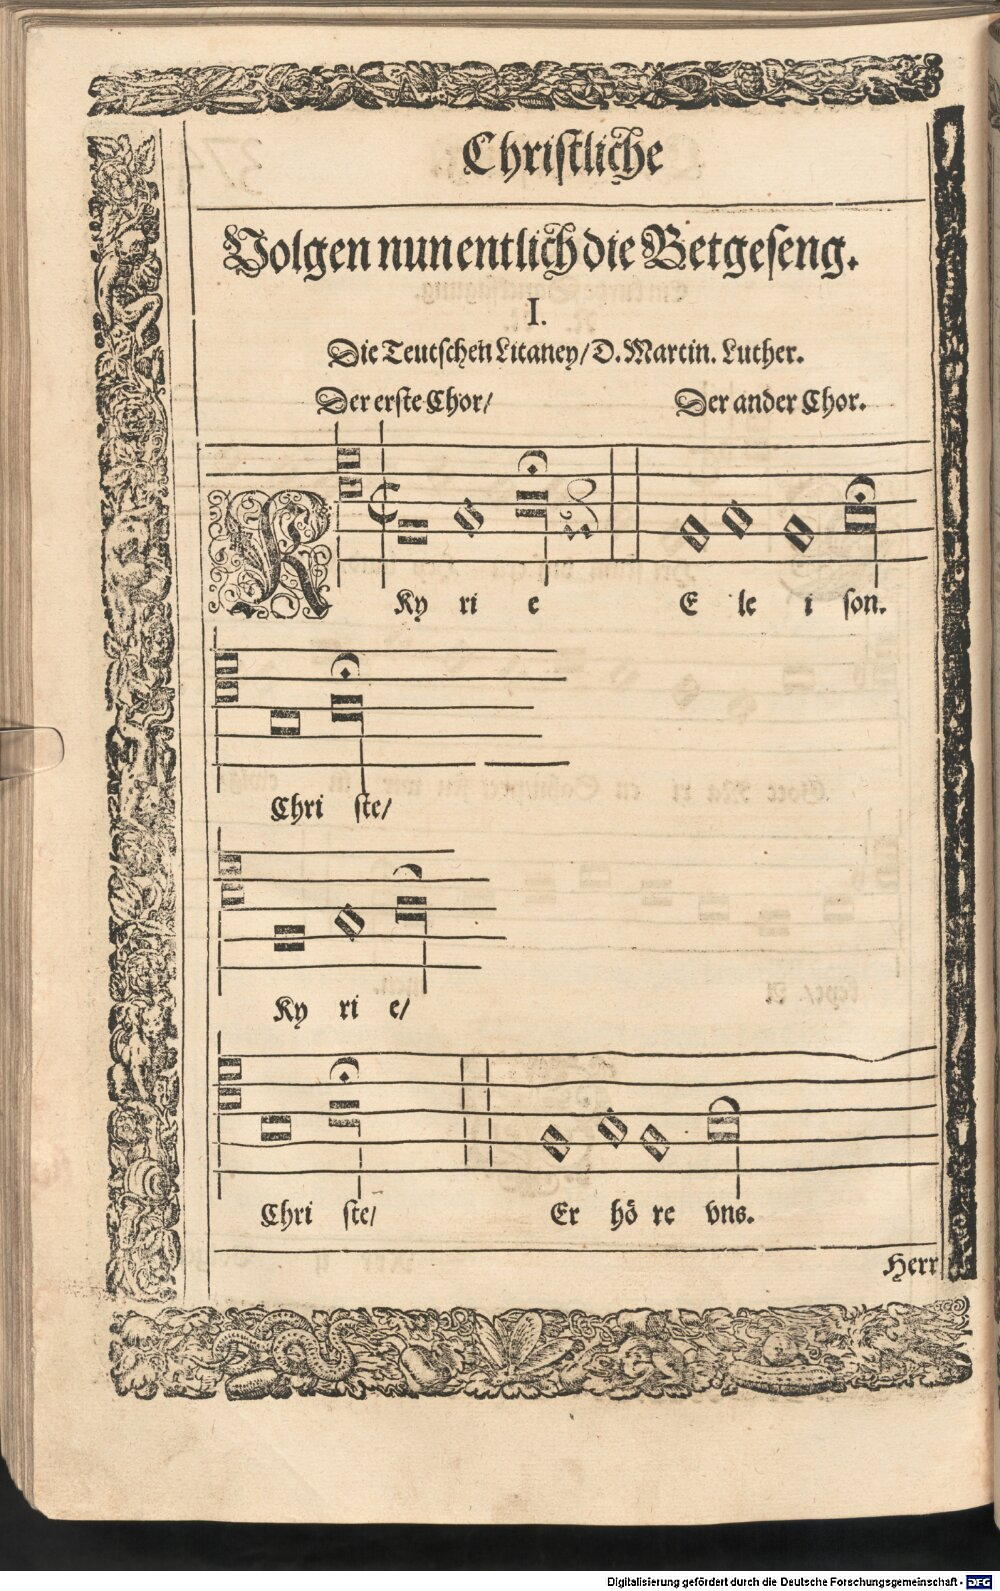 Christliche
Volgen nun entlich die Betgeseng.
I.
Die Teutschen Litaney/ D. Martin. Luther.
Der erste Chor/ Der ander Chor.
K Ky ri e E le i son.
Chri ste/
Ky ri e/
Chri ste/ Er hö re vns.
Herr
Digitalisierung gefördert durch die Deutsche Forschungsgemeinschaft - DFG